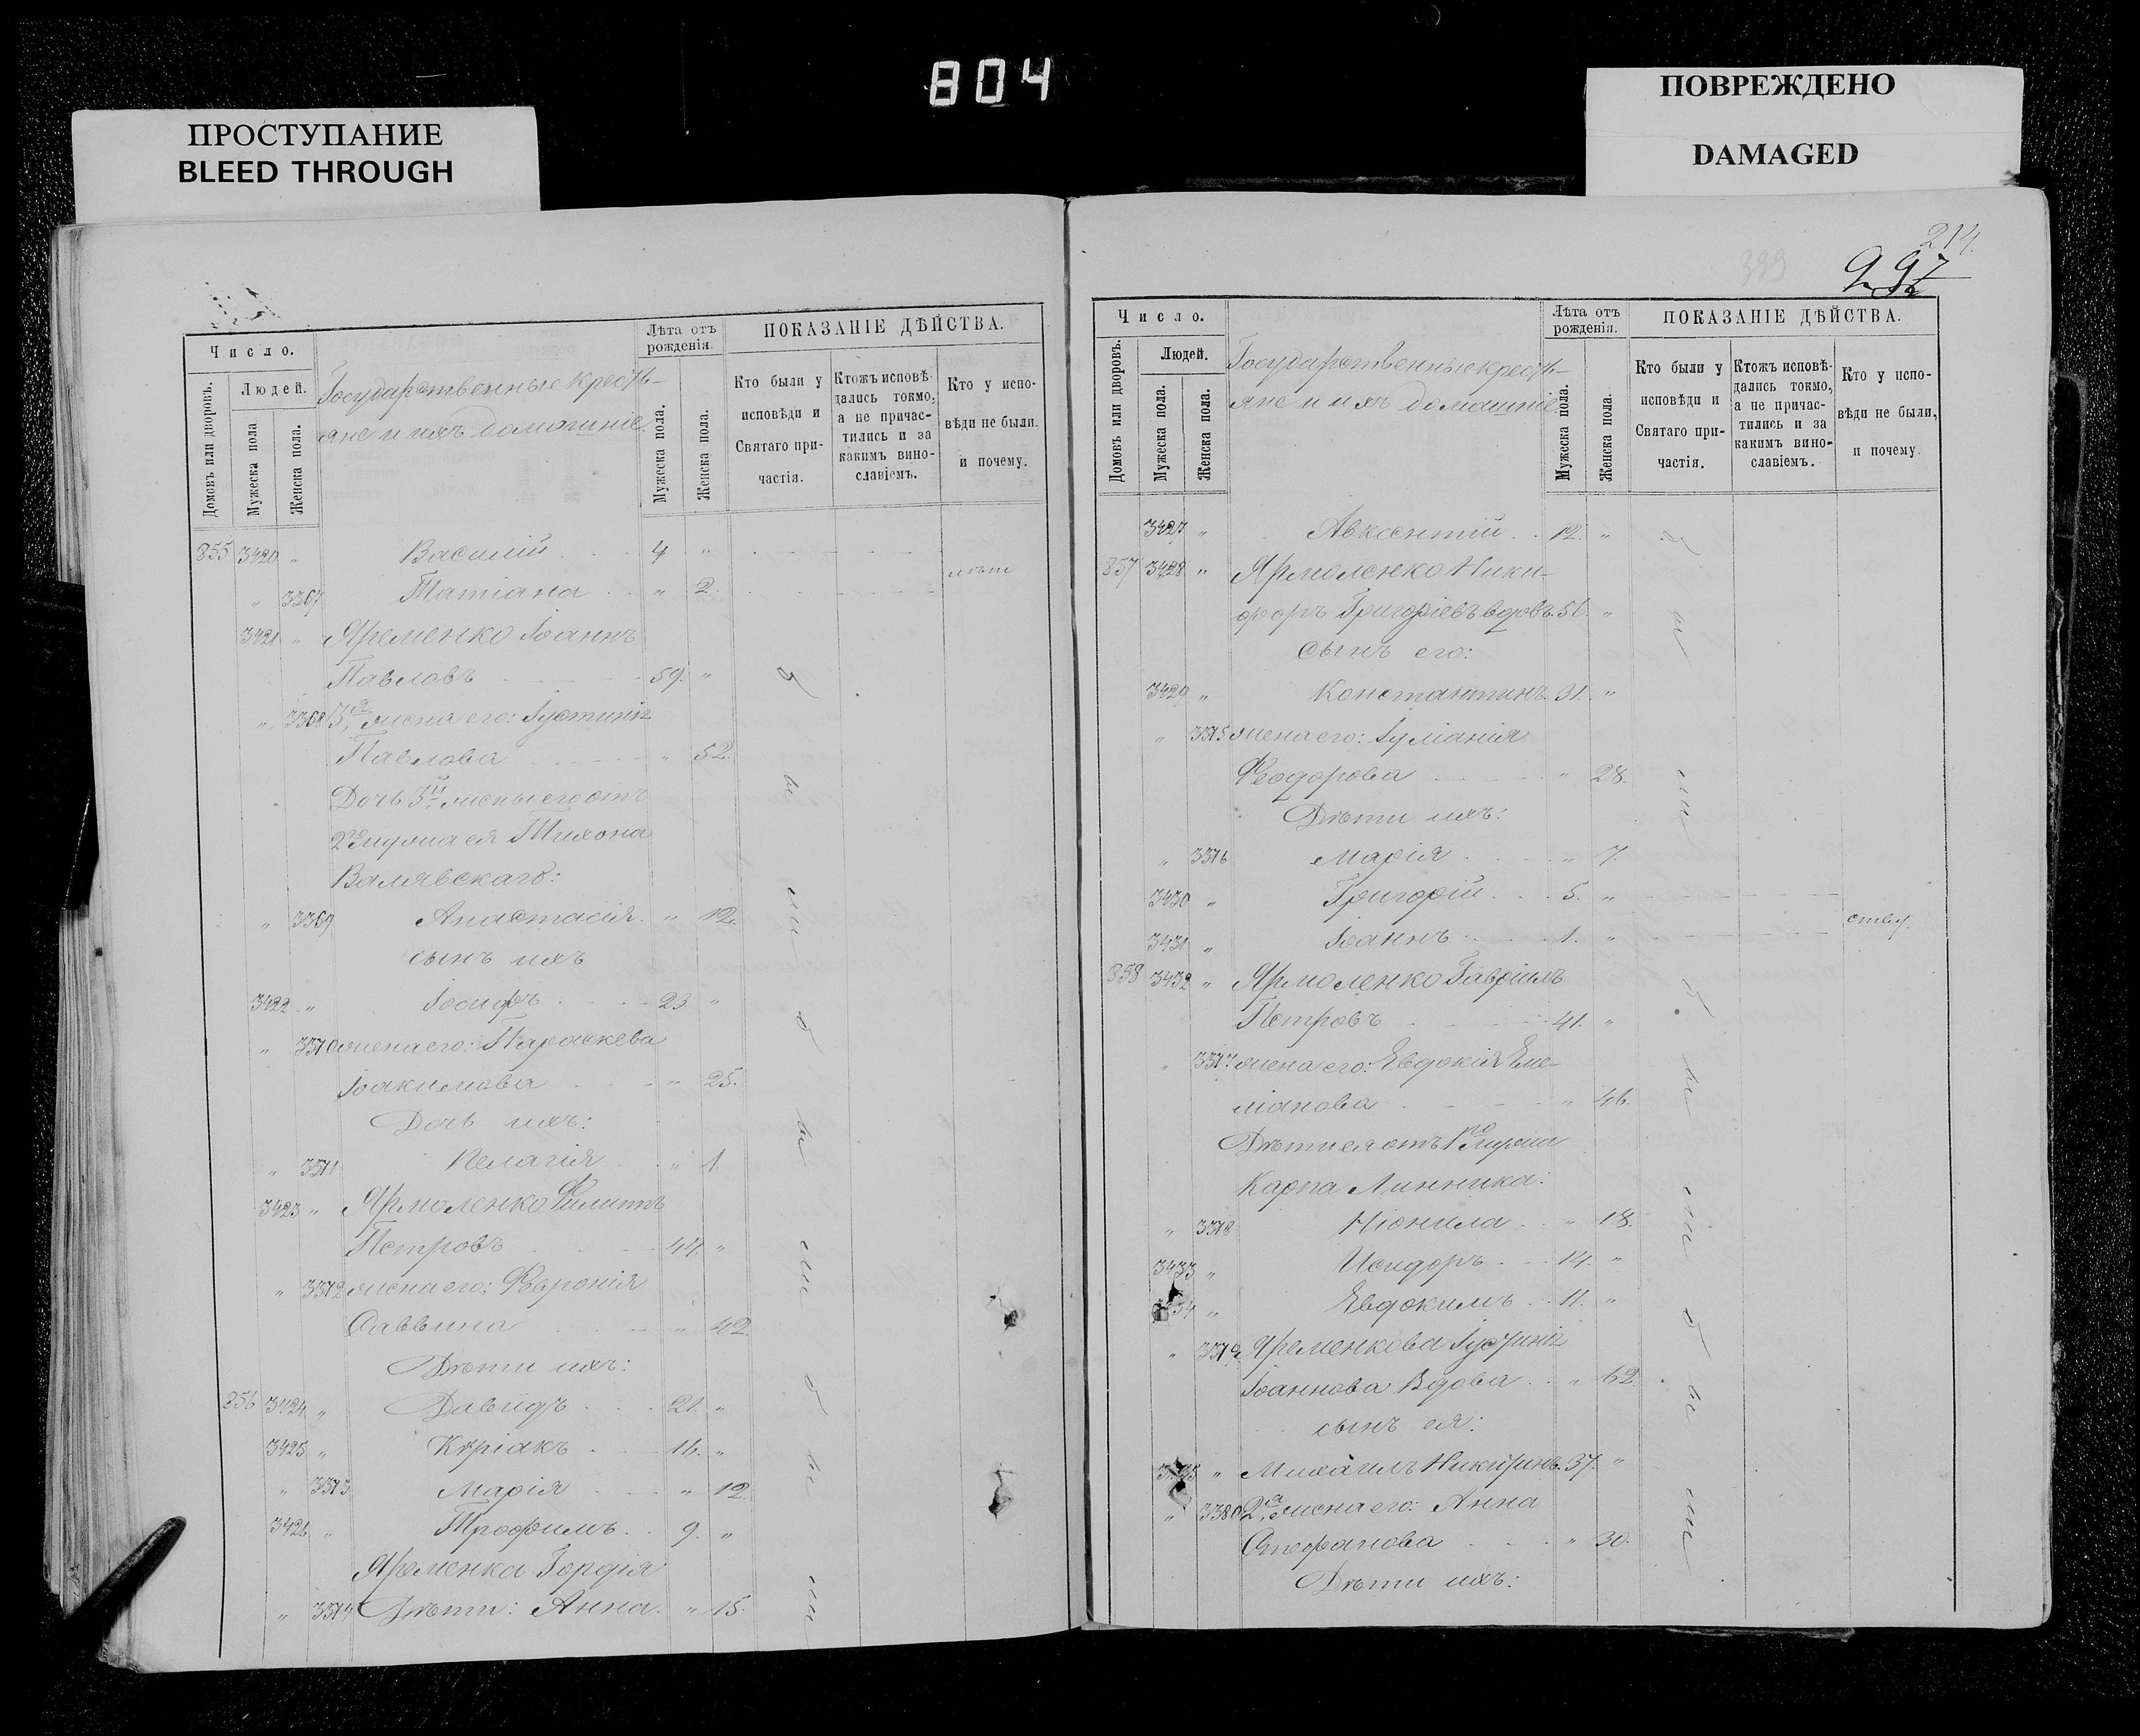 804
ПРОСТУПАНИЕ
BLEED THROUGH
ПОВРЕЖДЕНО
DAMAGED
Число.
Людей.
Домовъ или дворовъ.
Мужеска пола
Женска пола.
Государственные кресть-
яне и ихъ домашніе
Лѣта отъ
рожденія.
Мужеска пола.
Женска пола.
ПОКАЗАНІЕ ДѢЙСТВА.
Кто были у
исповѣди и
Святаго при-
частія.
Ктожъ исповѣ-
дались токмо,
а не причас-
тились и за
какимъ вино-
славіемъ.
Кто у испо-
вѣди не были.
и почему.
855 3420 " Василій 4 "
" 3367 Татіана " 2.
3421 " Яременко Іоаннъ
Павловъ 59. "
" 3368 3я жена его: Іустинія
Павлова " 52.
Дочь 3й жены его отъ
2го мужа ея Тихона
Валявскаго:
" 3369 Анастасія " 12.
сынъ ихъ
3422 " Іосифъ 23 "
" 3370 жена его: Параскева
Іоакимова " 25.
Дочь ихъ:
" 3371 Пелагія " 1.
3423 " Ярмоленко Филиппъ
Петровъ 44. "
" 3372 жена его: Февронія
Саввина " 42.
Дѣти ихъ:
856 3424 " Давидъ 21. "
3425 " Кѵріакъ 16. "
" 3373 Марія " 12.
3426 " Трофимъ 9. "
Яременка Гордія
" 3374 Дѣти: Анна " 15.
были
были
были
214.
399
Число.
Людей.
Домовъ или дворовъ.
Мужеска пола.
Женска пола.
Государственные кресть-
яне и ихъ домашніе
Лѣта отъ
рожденія.
Мужеска пола.
Женска пола.
ПОКАЗАНІЕ ДѢЙСТВА.
Кто были у
исповѣди и
Святаго при-
частія.
Ктожъ исповѣ-
дались токмо,
а не причас-
тились и за
какимъ вино-
славіемъ.
Кто у испо-
вѣди не были,
и почему.
3427 " Авксентій 12. "
857 3428 " Ярмоленко Ники-
форъ Григоріевъ вдовъ 56. "
сынъ его:
3429 " Константинъ 31. "
" 3375 жена его: Іуліанія
Феодорова " 28.
Дѣти ихъ:
" 3376 Марія " 7.
3430 " Григорій 5. "
3431 " Іоаннъ 1. "
858 3432 " Ярмоленко Гавріилъ
Петровъ 41. "
" 3377 жена его: Евдокія Еме-
ліанова " 46.
Дѣти ея отъ 1го мужа
Карпа Линника:
" 3378 Ніонила " 18.
3433 " Исидоръ 14. "
3434 " Евдокимъ 11. "
" 3379 Яременкова Іустинія
Іоаннова вдова " 62.
сынъ ея:
3435 " Михаилъ Никитинъ 37. "
" 3380 2я жена его: Анна
Стефанова " 30.
Дѣти ихъ:
были
были